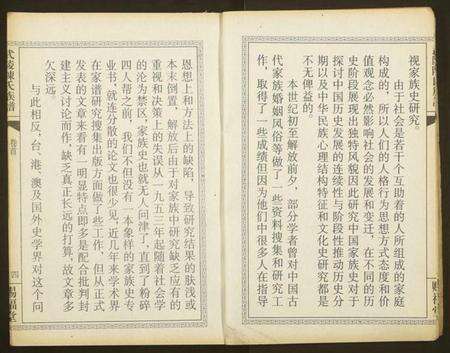 视家族史研究。
由于社会是若干个互助着的人所组成的家庭
构成的，所以人们的人格行为思想方式态度和价
值观念必然影响社会的发展和变迁，在不同的历
史阶段展现出独特风貌因此研究中国家族史对于
探讨中国历史发展的连续性与阶段性推动历史分
期以及中华民族心理结构特征和文化史研究都是
不无俾益的。
本世纪初至解放前夕，部分学者曾对中国古
代家族婚姻风俗等做了一些资料搜集和研究工
作，取得了一些成绩但因为他们中很多人在指导
武陵陳氏族譜
卷首
四
賜福堂
恩想上和方法上的缺陷，导致研究结果的肤浅或
本末倒置，解放后由于对家族中研究缺乏应有的
重视和决策上的失误从一九五三年起随着社会学
的沦为禁区，家族史也就无人问津了，直到了粉碎
四人帮之前，我们不但没有一本象样的家族史专
业书，就连分散的论文也很少见，近几年来学术界
在家谱研究搜集出版方面做了些工作，但从正式
发表的文章来看有一明显特点即多是配合批判封
建主义讨论而作，缺乏真正长远的打算，故文章多
欠深远。
与此相反，台，港，澳及国外史学界对这个问